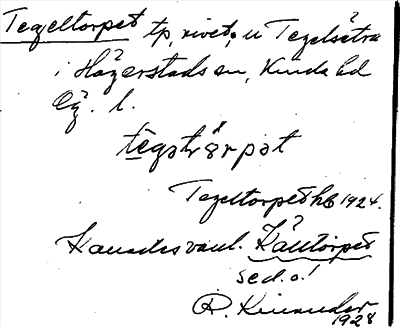 Tegeltorpet tp, rivet, u Tegelsätra
i Hägerstads sn, Kinda hd
Ög. l.
Tegeltorpet hb 1924.
Kanades vanl. Käntorpet
se d. o.!
R. Kinander
1928